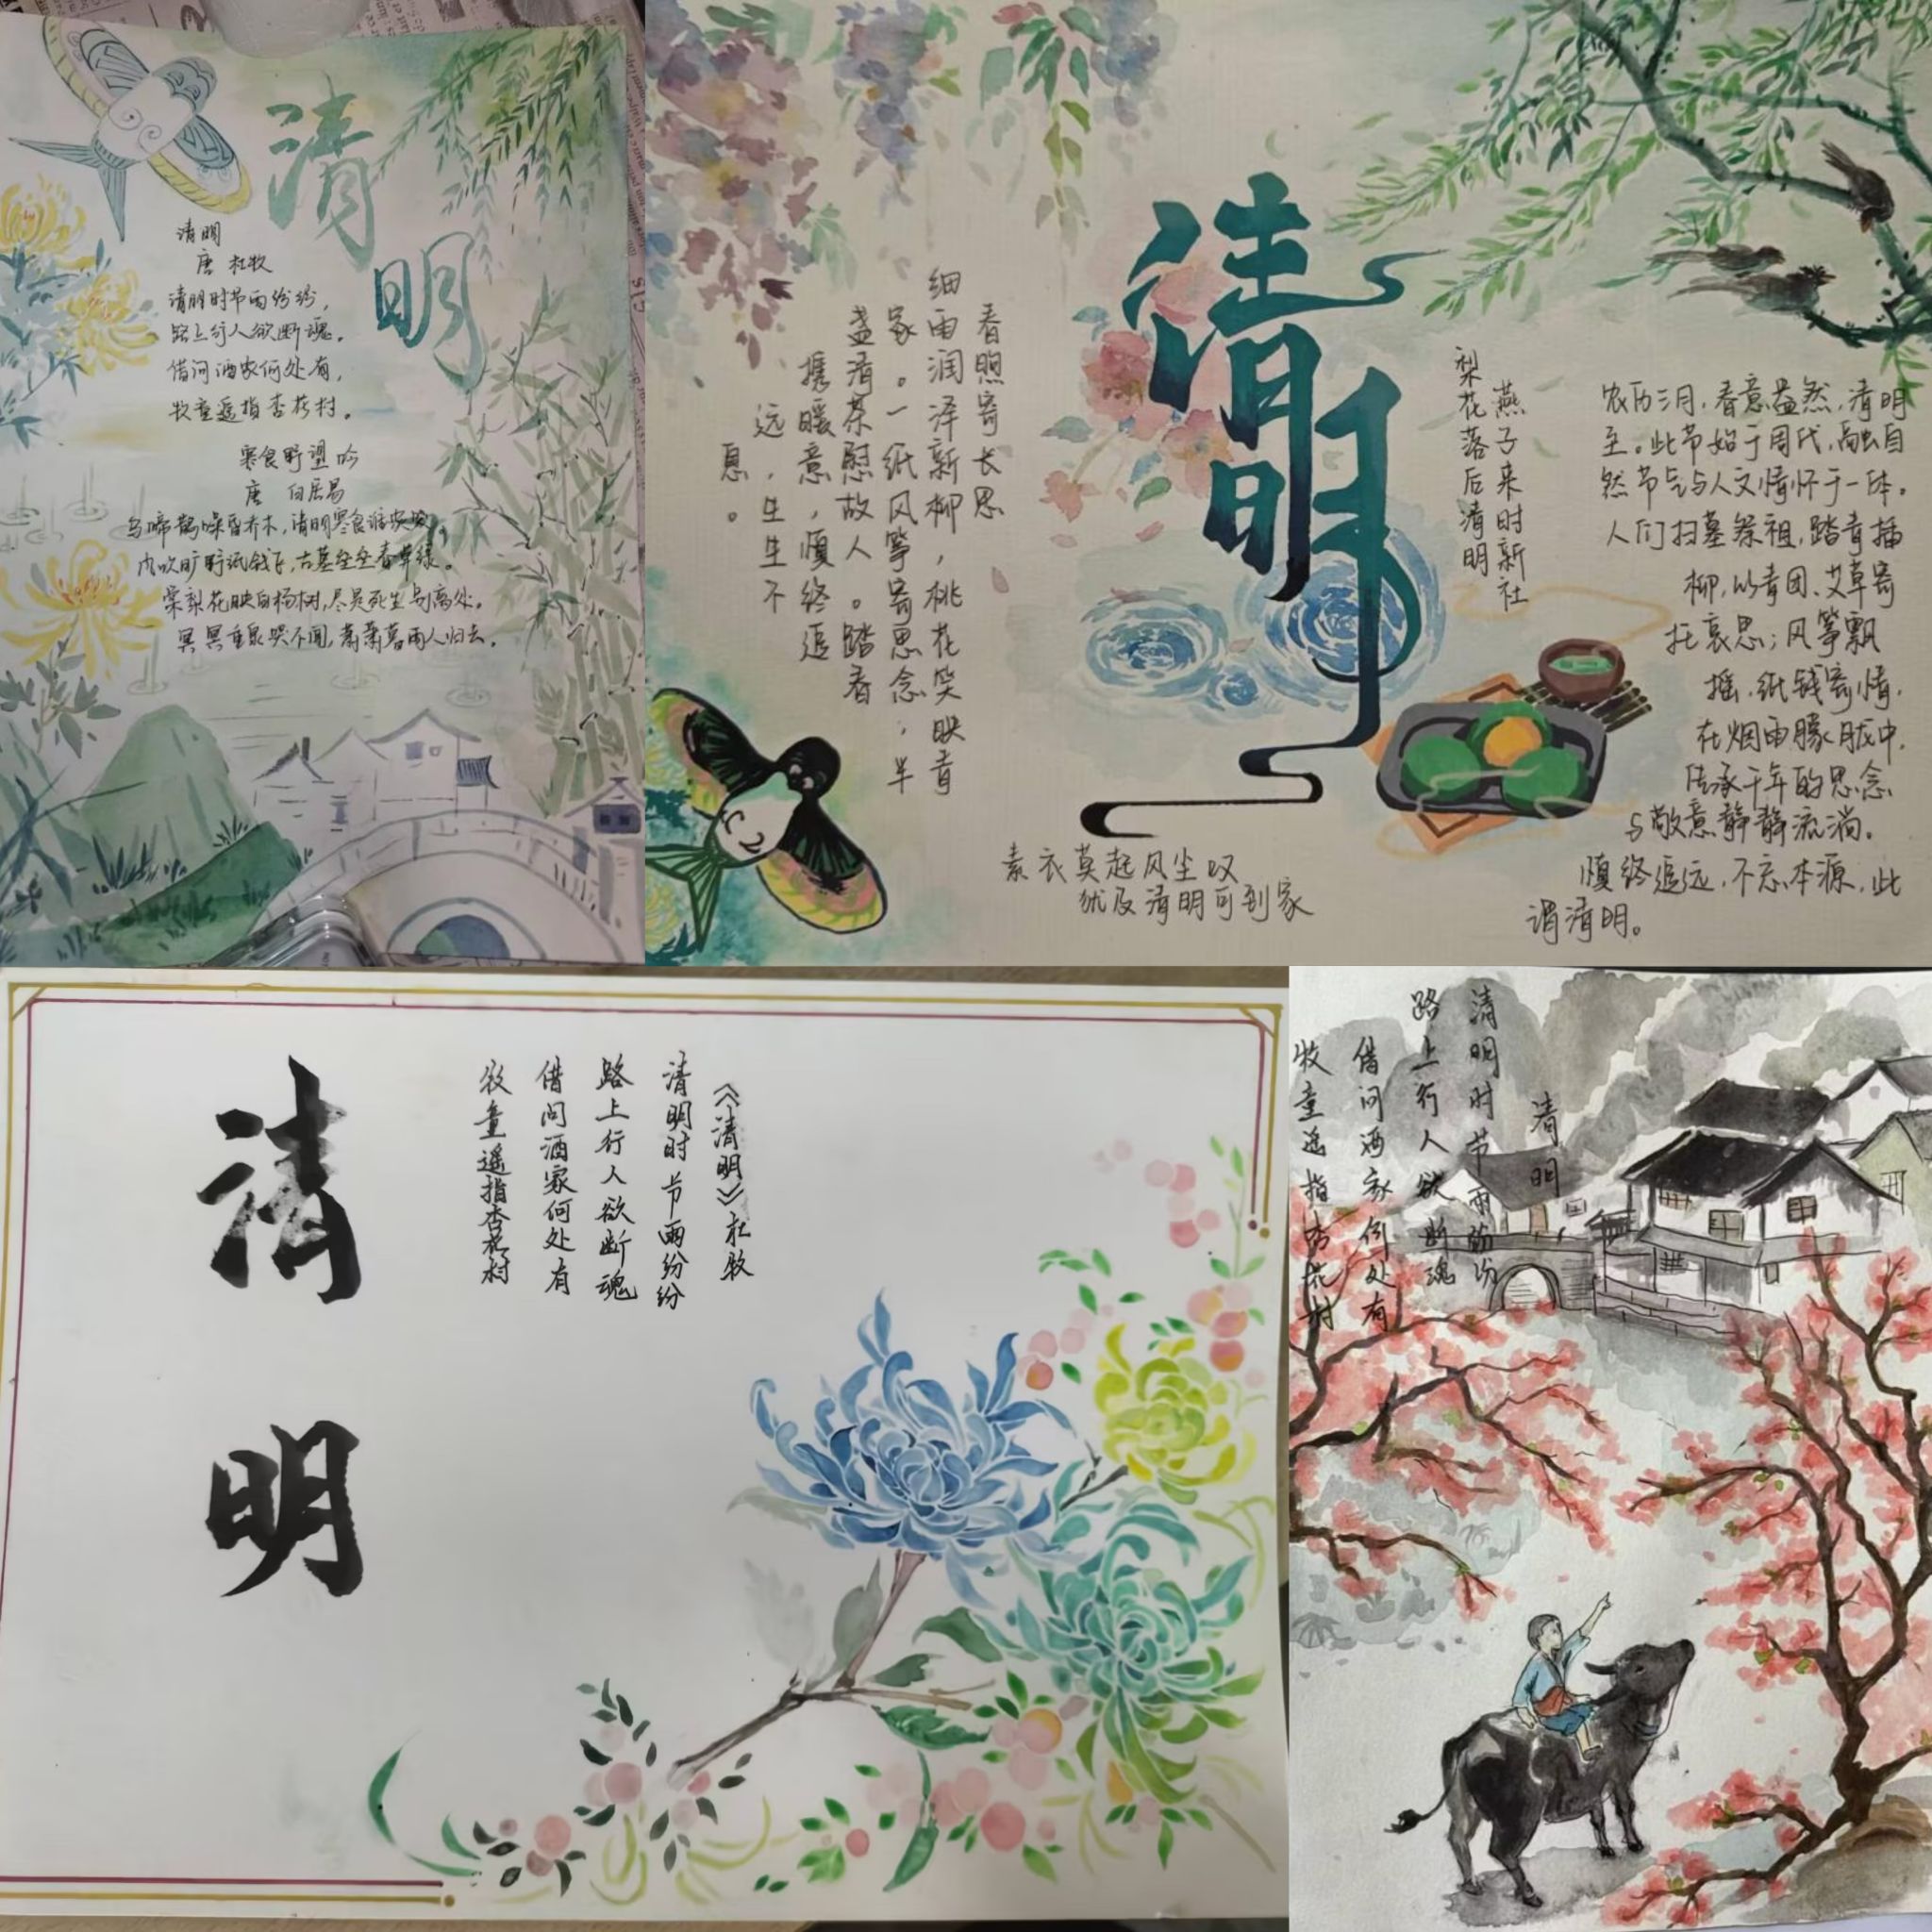 清
明
清明
唐 杜牧
清明时节雨纷纷，
路上行人欲断魂。
借问酒家何处有，
牧童遥指杏花村。
寒食野望吟
唐 白居易
乌啼鹊噪昏乔木，清明寒食谁家哭。
风吹旷野纸钱飞，古墓垒垒春草绿。
棠梨花映白杨树，尽是死生别离处。
冥冥重泉哭不闻，萧萧暮雨人归去。
清明
春煦寄长思
细雨润泽新柳，桃花笑映青
家。一纸风筝寄思念；半
盏清茶慰故人。踏春
携暖意，慎终追
远，生生不
息。
燕子来时新社
梨花落后清明
农历三月，春意盎然，清明
至。此节始于周代，融自
然节气与人文情怀于一体。
人们扫墓祭祖，踏青插
柳，以青团、艾草寄
托哀思；风筝飘
摇，纸钱寄情，
在烟雨朦胧中，
传承千年的思念
与敬意静静流淌。
慎终追远，不忘本源，此
谓清明。
素衣莫起风尘叹
犹及清明可到家
清
明
《清明》杜牧
清明时节雨纷纷
路上行人欲断魂
借问酒家何处有
牧童遥指杏花村
清明
清明时节雨纷纷
路上行人欲断魂
借问酒家何处有
牧童遥指杏花村